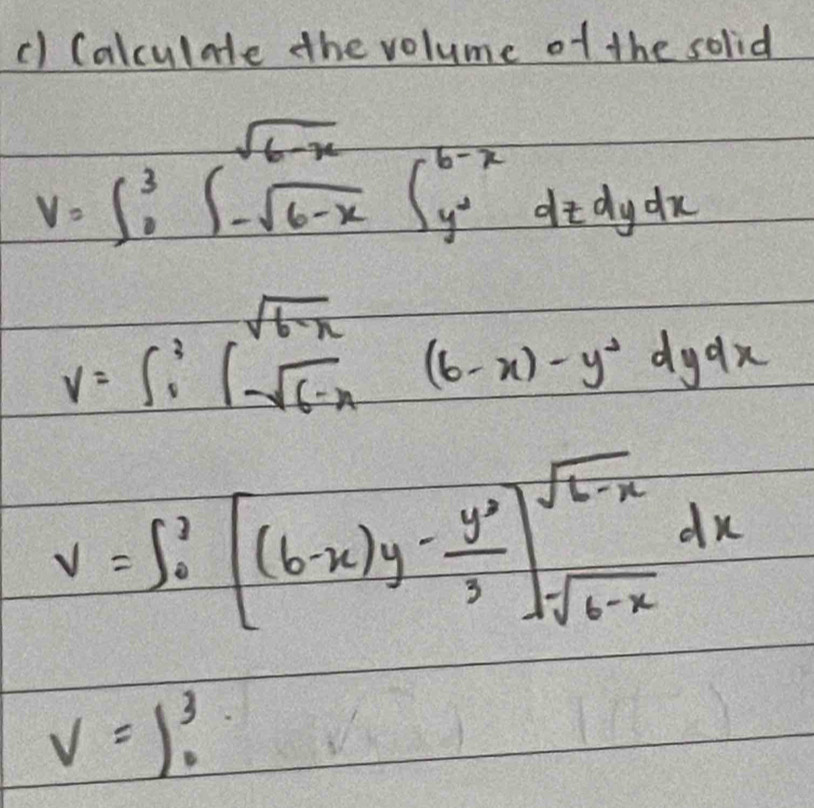 c) Calculate the volume of the solid
V = ∫₀³ ∫_{-√(6-x)}^{√(6-x)} ∫_{y²}^{6-x} dz dy dx
V = ∫₀³ ∫_{-√(6-x)}^{√(6-x)} (6-x) - y² dy dx
V = ∫₀³ [(6-x)y - y³/3]_{-√(6-x)}^{√(6-x)} dx
V = ∫₀³